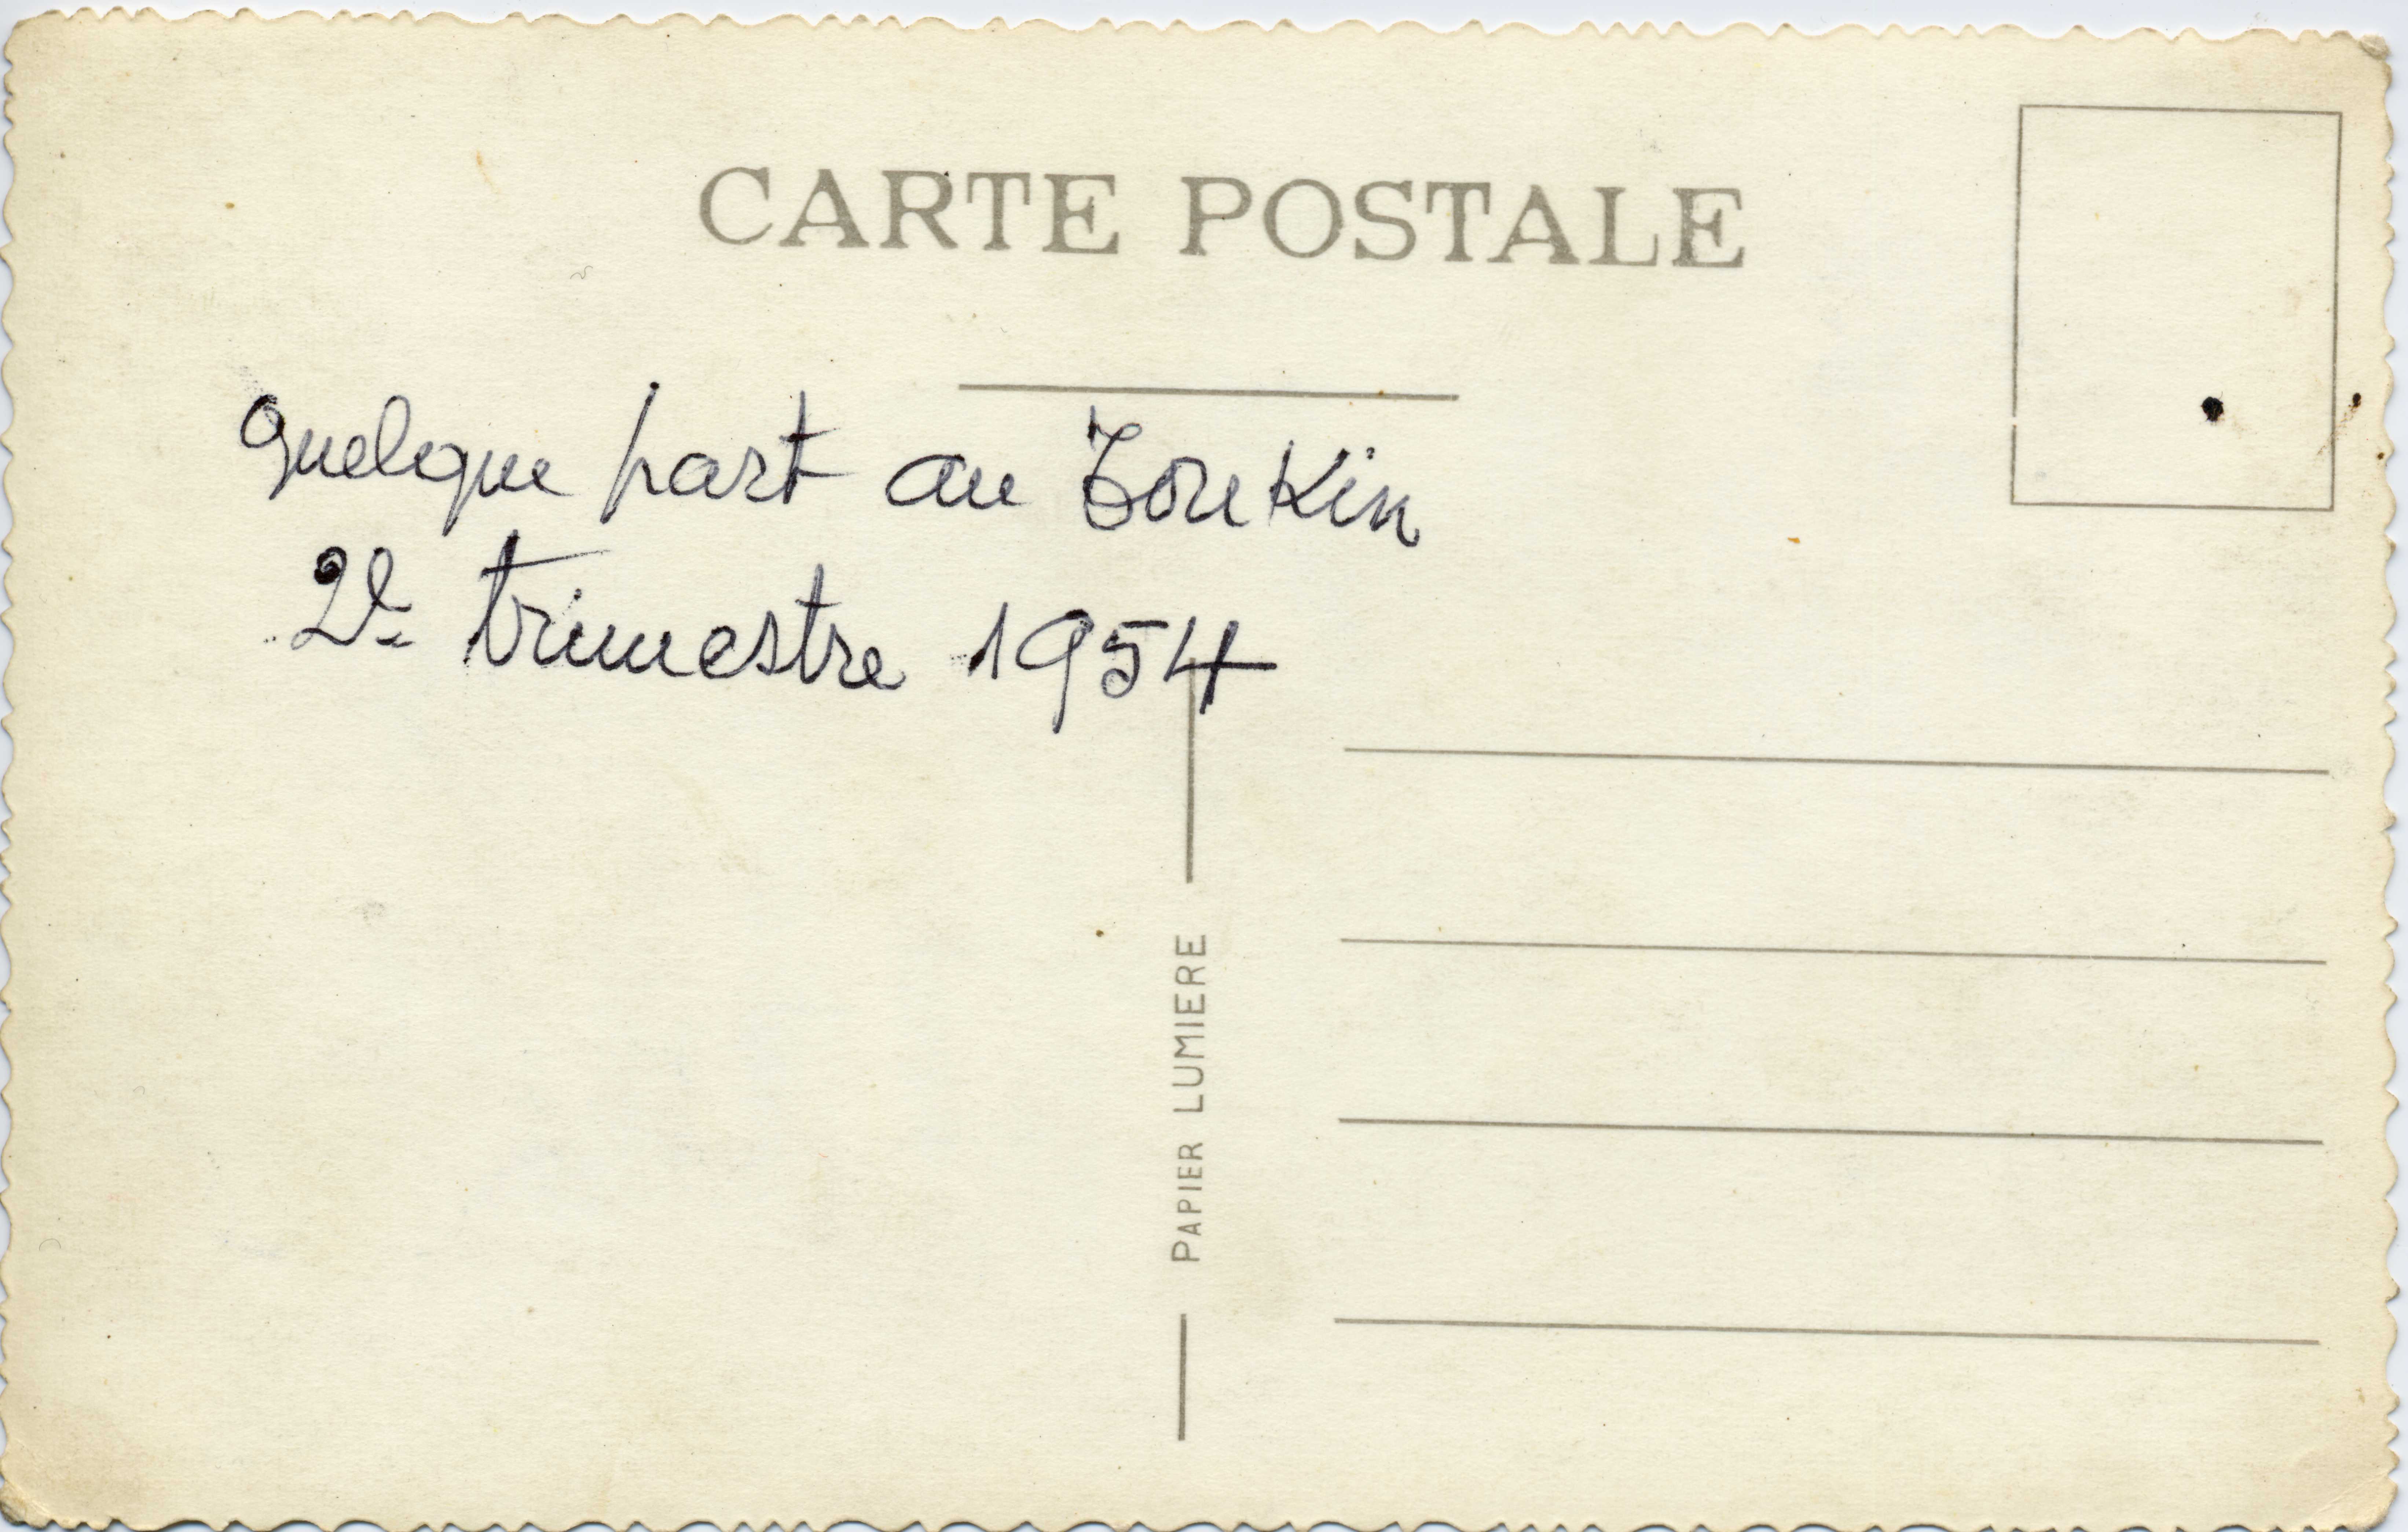 CARTE POSTALE
Quelque part au Tonkin
2e trimestre 1954
PAPIER LUMIERE